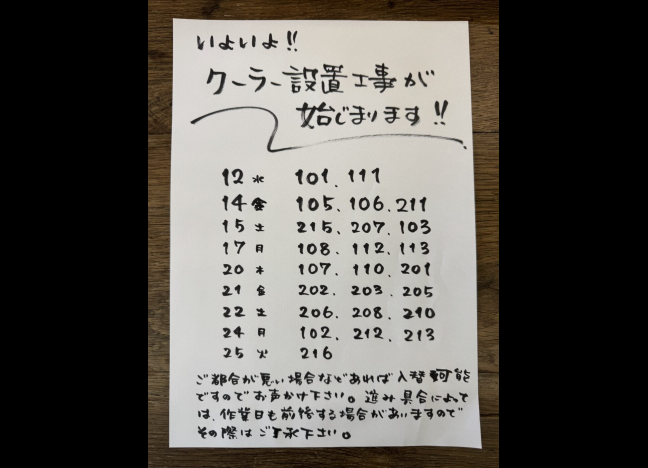 いよいよ!!
クーラー設置工事が
始じまります!!
12 水 101、111
14 金 105、106、211
15 土 215、207、103
17 月 108、112、113
20 木 107、110、201
21 金 202、203、205
22 土 206、208、210
24 月 102、212、213
25 火 216
ご都合が悪い場合などあれば入替可能
ですのでお声かけ下さい。進み具合によって
は、作業日も前後する場合がありますので
その際はご了承下さい。